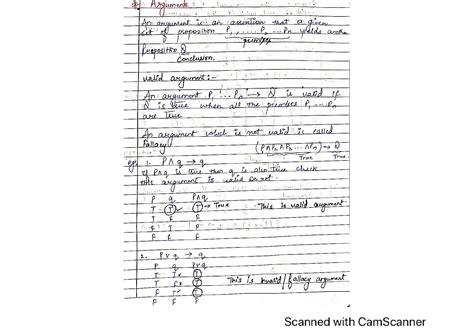 Arguments
An argument is an assertion that a given
set of proposition P₁ ... Pₙ yields another
premises
proposition Q
Conclusion.
valid argument:-
An argument P₁ ... Pₙ → Q is valid if
Q is true when all the premises P₁ ... Pₙ
are true
An argument which is not valid is called
fallacy (P₁∧P₂∧P₃ ... ∧Pₙ) → Q
True True
eg. 1. P∧q → q
if P∧q is true then q is also true check
the argument is valid or not.
P q P∧q
T T T → True This is valid argument
T F F
F T F
F F F
2. P∨q → q
P q P∨q
T T T
T F T This is invalid/fallacy argument
F T T
F F F
Scanned with CamScanner